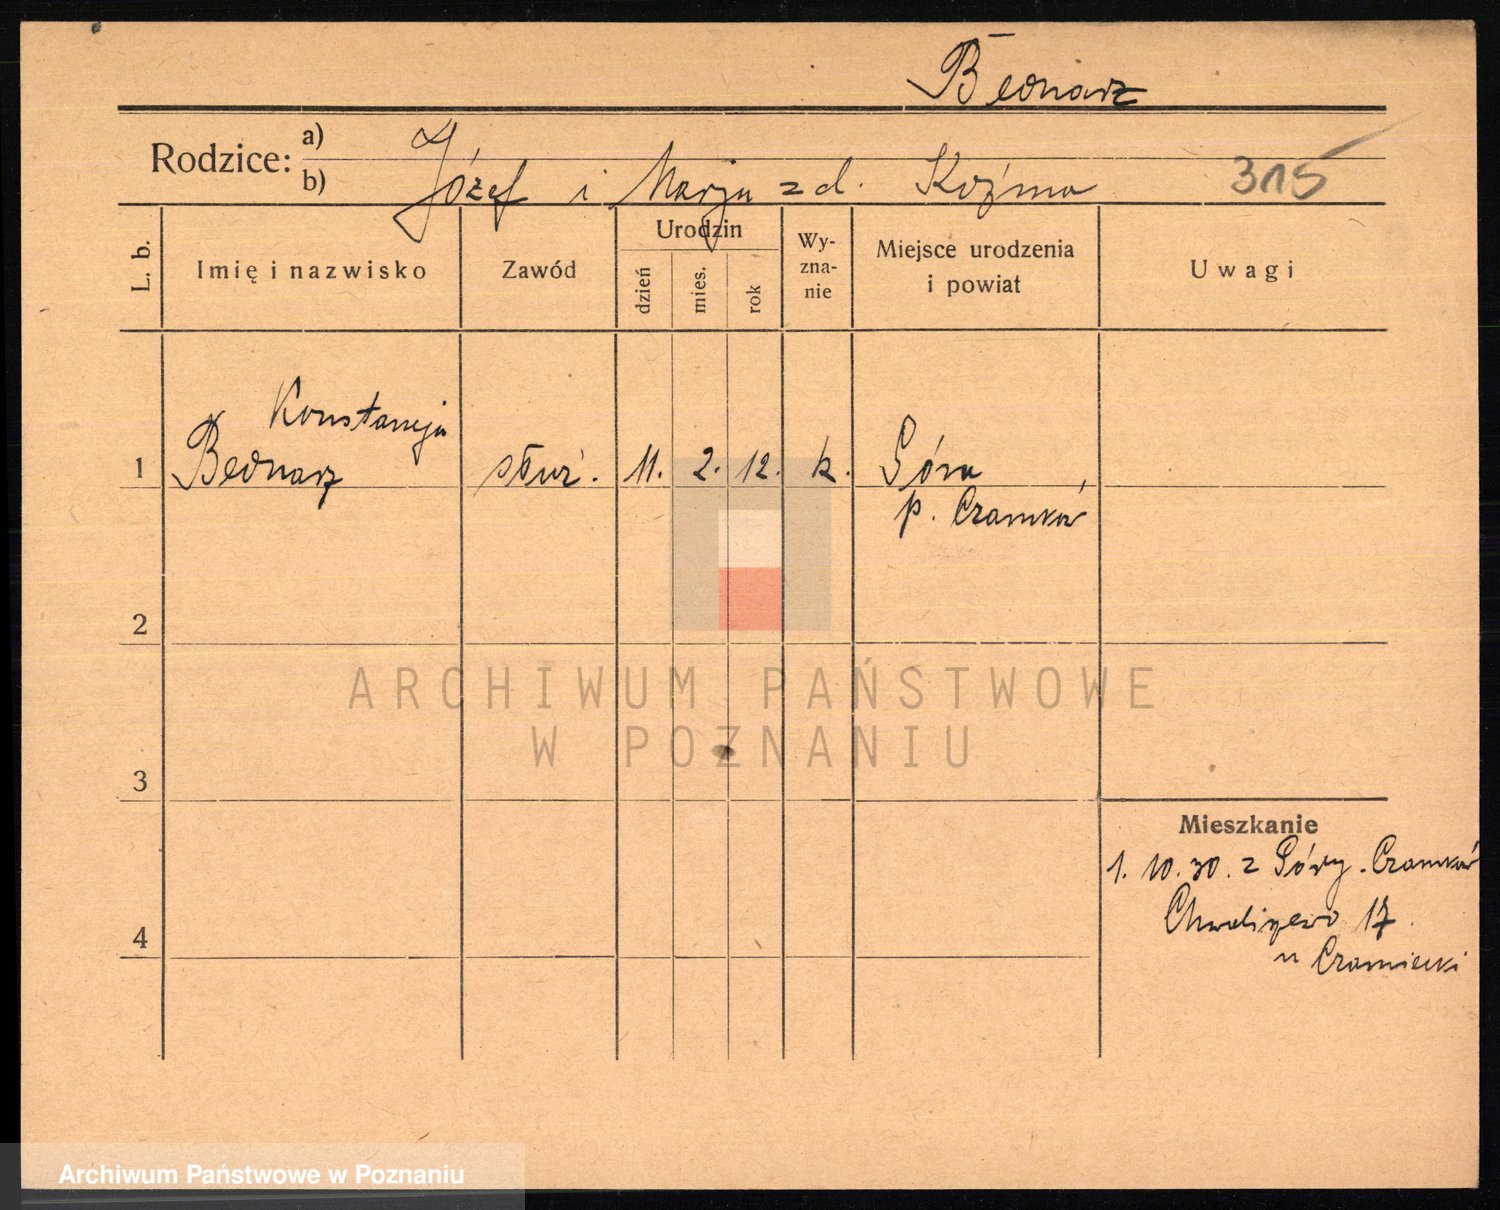 Bednarz
Rodzice: a)
b) Józef i Marja z d. Koźma 315
L. b.
Imię i nazwisko
Zawód
Urodzin
dzień
mies.
rok
Wy-
zna-
nie
Miejsce urodzenia
i powiat
Uwagi
Konstancja
1 Bednarz służ. 11. 2. 12. k. Góra
p. Czarnków
2
3
4
Mieszkanie
1. 10. 30. z Góry. Czarnków
17
u Czarniecki
ARCHIWUM PAŃSTWOWE
W POZNANIU
Archiwum Państwowe w Poznaniu